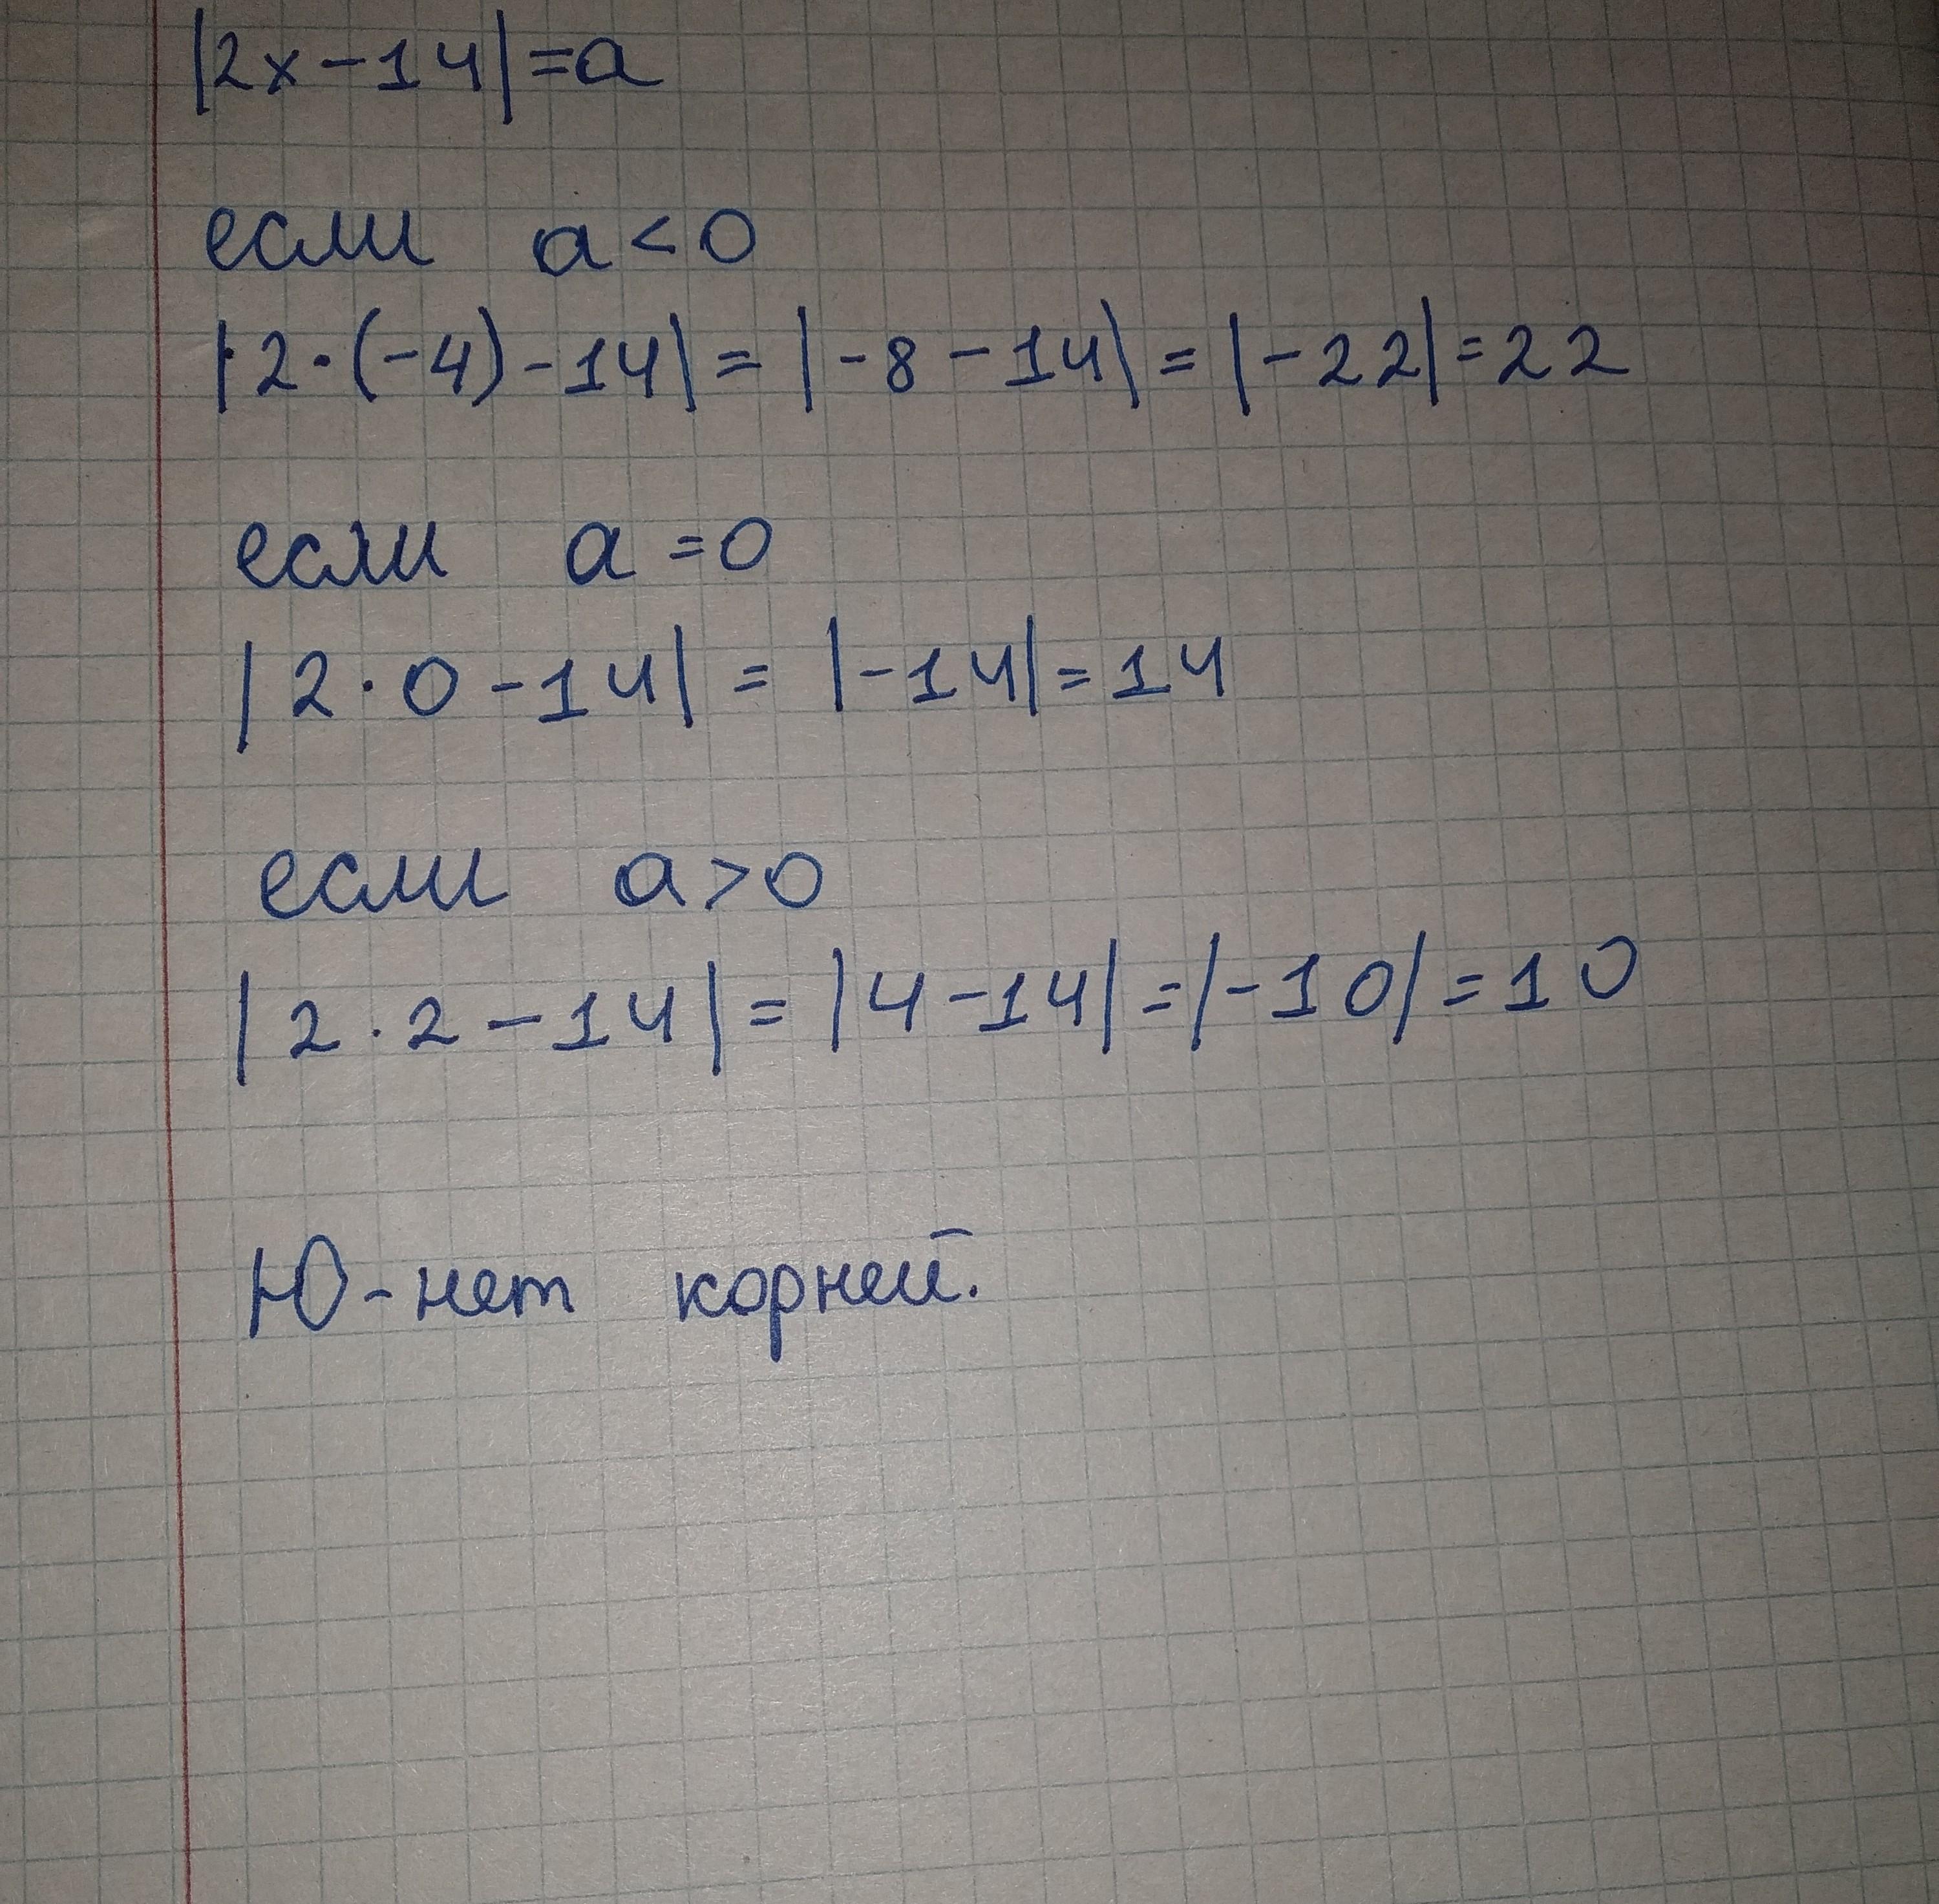 |2x-14|=a
если a<0
|2·(-4)-14|=|-8-14|=|-22|=22
если a=0
|2·0-14|=|-14|=14
если a>0
|2·2-14|=|4-14|=|-10|=10
Ю-нет корней.